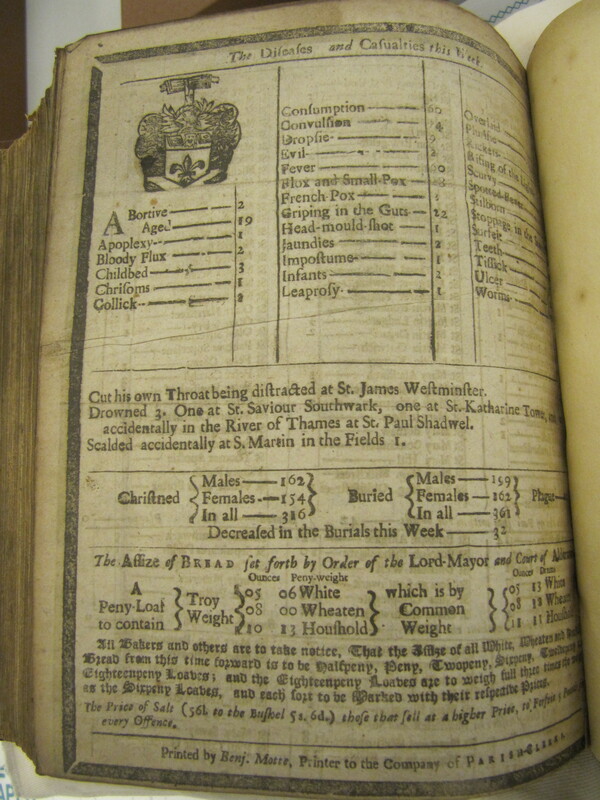 The Diſeaſes and Caſualties this Week.
ABortive 2
Aged 19
Apoplexy 1
Bloody Flux 2
Childbed 3
Chriſoms 1
Collick
Conſumption 60
Convulſion
Dropſie
Evil
Fever
Flux and Small-Pox
French Pox
Griping in the Guts 22
Head-mould-ſhot 1
Jaundies 2
Impoſtume 1
Infants 2
Leaproſy 1
Overlaid
Rickets
Riſing of the
Scurvy
Spotted
Stilborn
Stoppage in the
Surfeit
Teeth
Tiſſick
Ulcer
Worms
Cut his own Throat being diſtracted at St. James Weſtminſter.
Drowned 3. One at St. Saviour Southwark, one at St. Katharine Tower,
accidentally in the River of Thames at St. Paul Shadwel.
Scalded accidentally at S. Martin in the Fields 1.
Chriſtned Males 162 Females 154 In all 316 Buried Males 199 Females 162 In all 361 Plague
Decreaſed in the Burials this Week 32
The Aſſize of BREAD ſet forth by Order of the Lord-Mayor and Court of
Ounces Peny-weight Ounces Drams
A Peny-Loaf to contain Troy Weight 05 06 White 08 00 Wheaten 10 13 Houſhold which is by Common Weight 05 13 White 08 Wheaten 11 11
All Bakers and others are to take notice, That the Aſſize of all White, Wheaten and
Bread from this time forward is to be Halfpeny, Peny, Twopeny, Sixpeny,
Eighteenpeny Loaves; and the Eighteenpeny Loaves are to weigh full three times the
as the Sixpeny Loaves, and each ſort to be Marked with their reſpective Prices.
The Price of Salt (56l. to the Buſhel 5s. 6d.) thoſe that ſell at a higher Price, to Forfeit 5
every Offence.
Printed by Benj. Motte, Printer to the Company of PARISH-CLERKS.